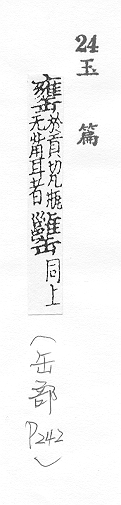 24
玉篇
罋於貢切瓶
无耳者
同上
(缶部
P242)